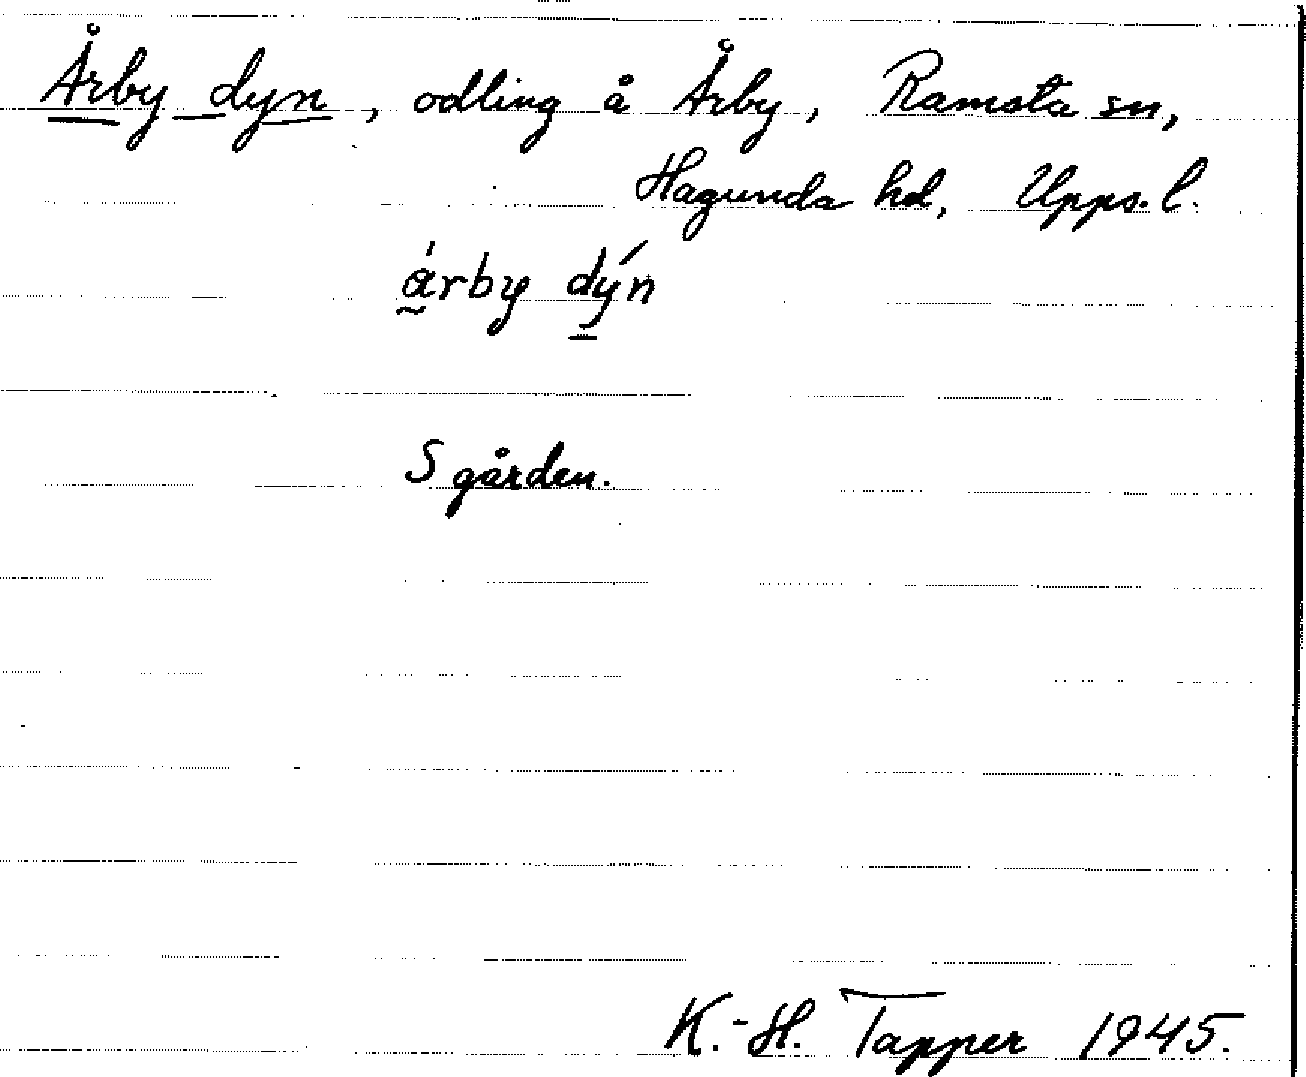 Årby dyn, odling å Årby, Ramsta sn,
Hagunda hd, Upps. l.
årby dýn
S gården.
K.-H. Tapper 1945.